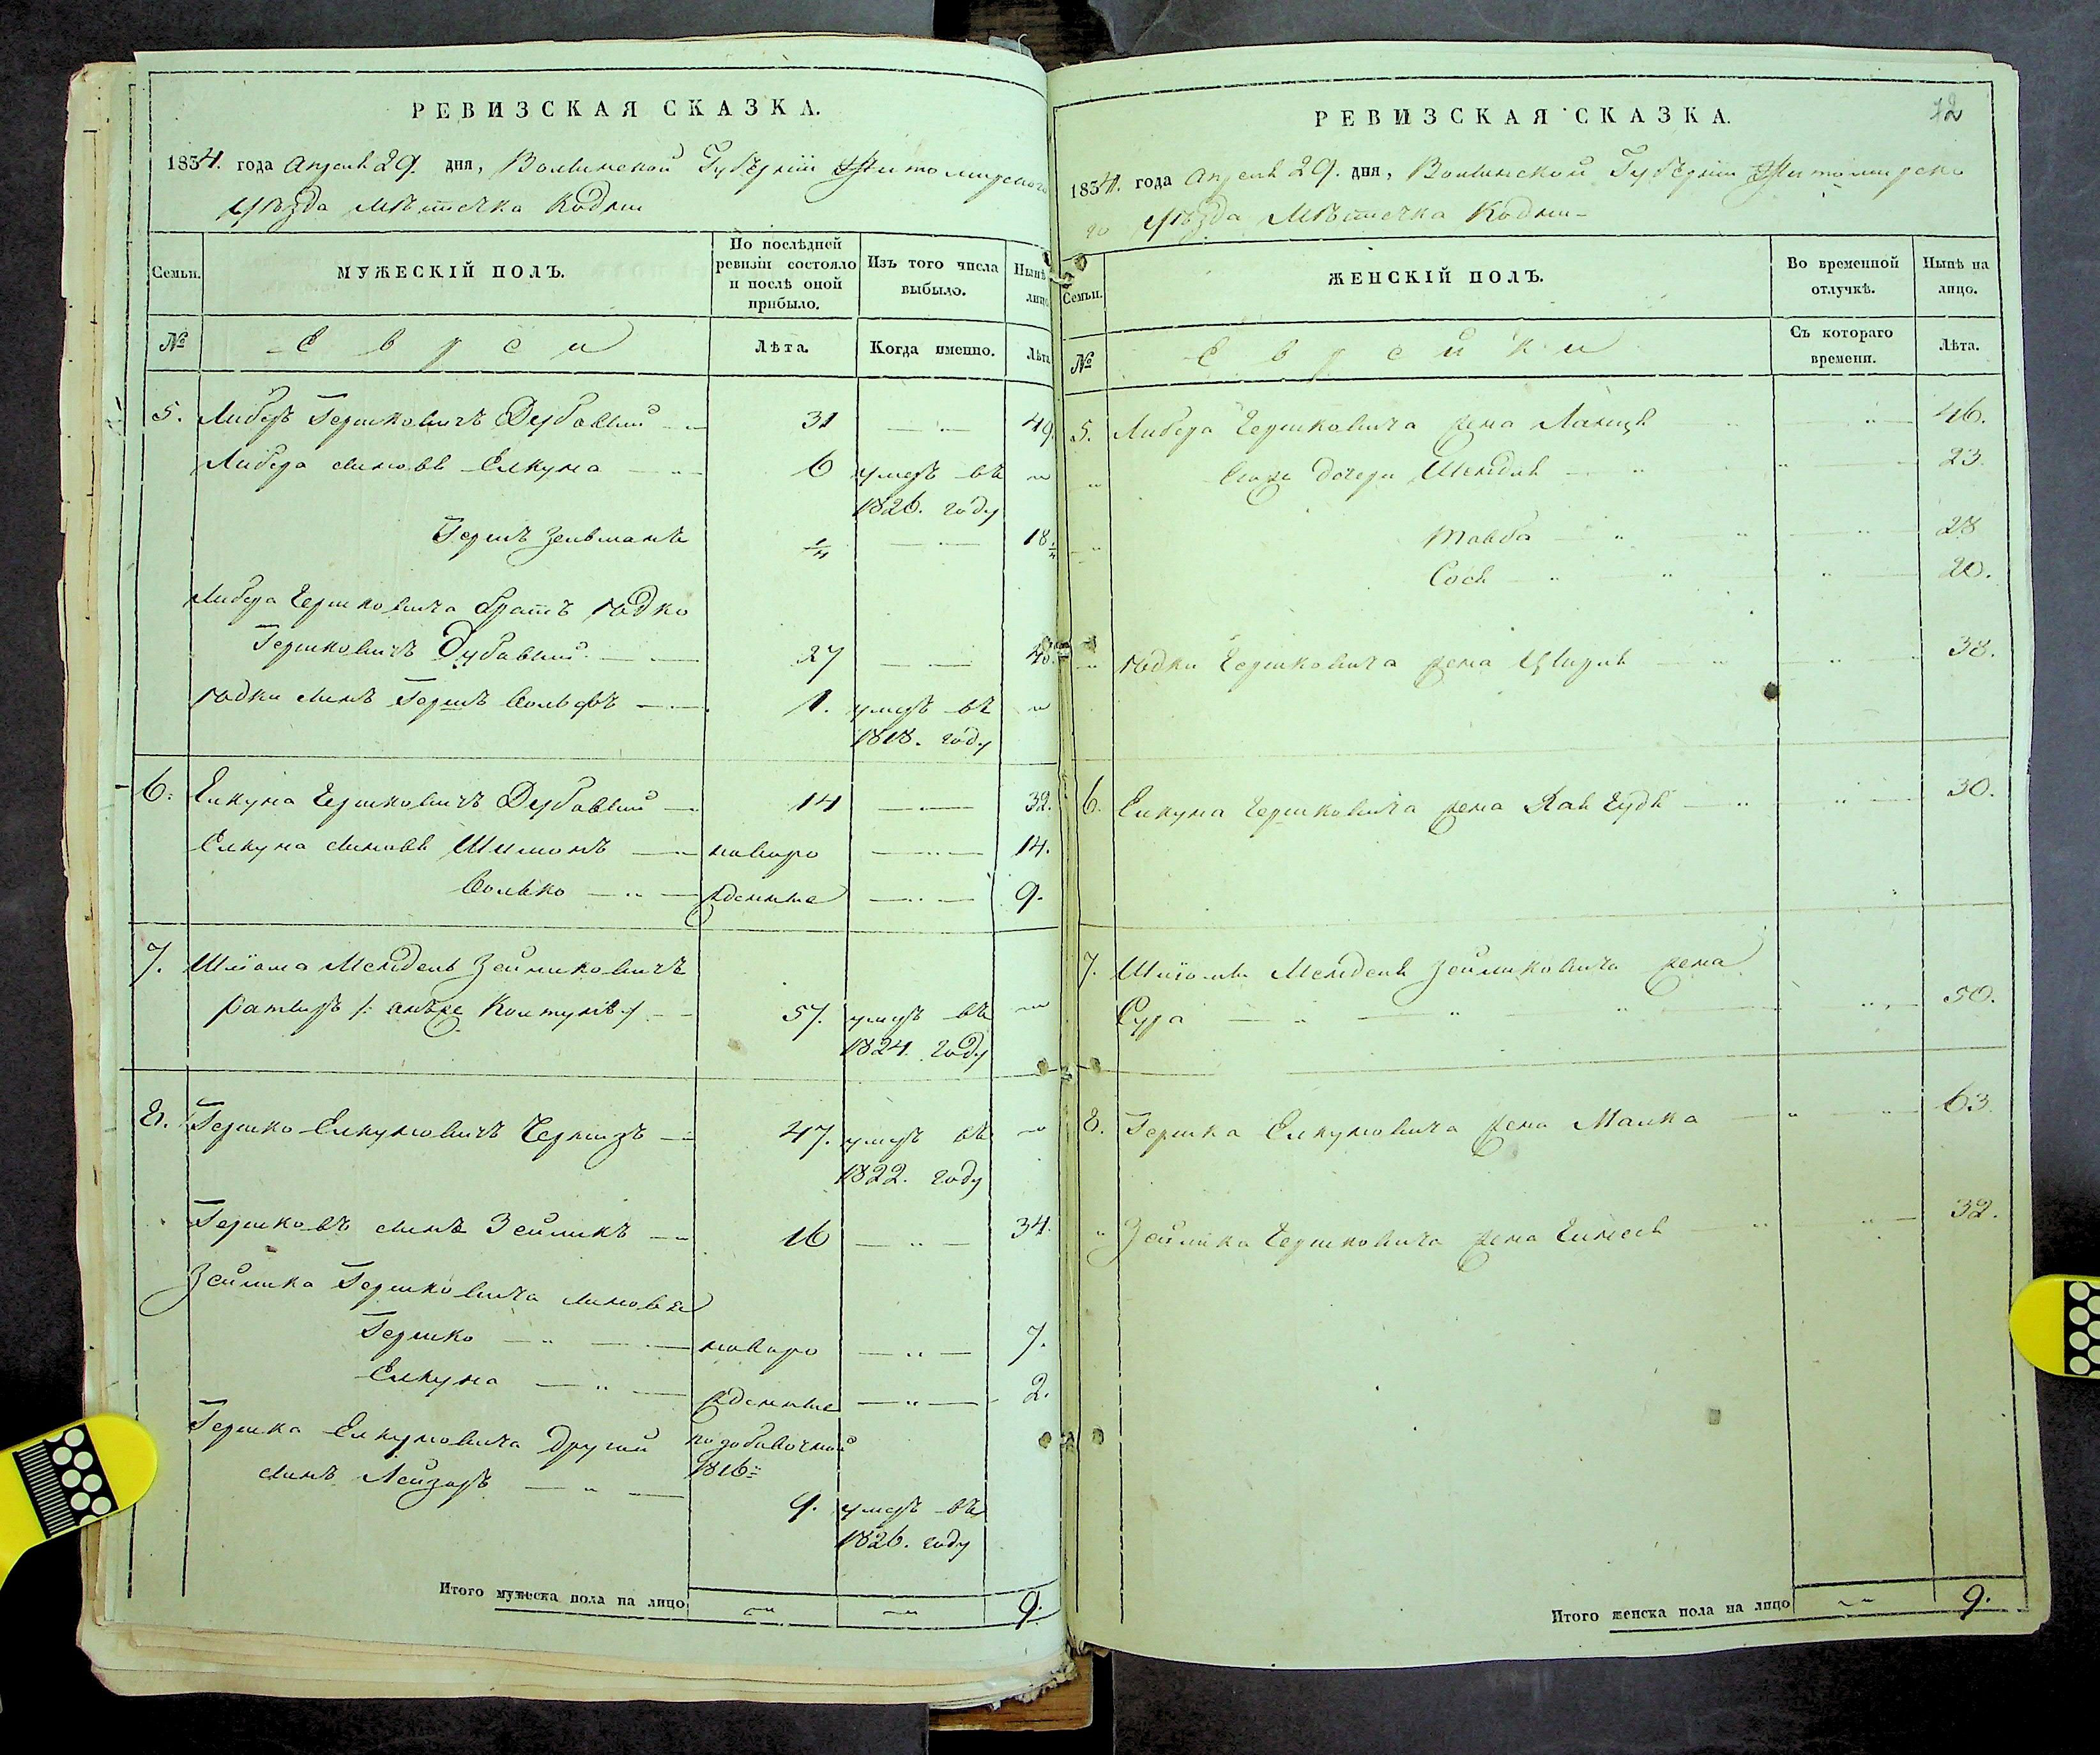 РЕВИЗСКАЯ СКАЗКА.
1834. года Апреля 29. дня, Волынской Губерніи Житомирского
уѣзда Мѣстечка Кодни
Семьи.
МУЖЕСКІЙ ПОЛЪ.
По послѣдней
ревизіи состояло
и послѣ оной
прибыло.
Изъ того числа
выбыло.
Нынѣ
лицо
№
Евреи
Лѣта.
Когда именно.
Лѣта
5. Либеръ Гершковичъ Дубовый 31 49.
Либера синовя Елкуна 6 умеръ въ
1826. году
Гершъ Зельманъ 1/4 18 1/4
Либера Гершковича братъ Юдко
Гершковичъ Дубовый 27 40.
Юдки синъ Гершъ Вольфъ 1. умеръ въ
1818. году
6. Елкуна Гершковичъ Дубовый 14 32.
Елкуна синовя Шимонъ новоро 14.
Волько жденные 9.
7. Шліома Мендель Зейликовичъ
умеръ въ 57.
1824. году
8. Гершко Елкуновичъ 47. умеръ въ
1822. году
Гершковъ синъ Зейликъ 16 34.
Зейлика Гершковича синовья
Гершко новоро 7.
Елкуна жденные 2.
Гершка Елкуновича другий
1816:
синъ Лейзоръ 9. умеръ въ
1826. году
Итого мужеска пола на лицо 9.
12
РЕВИЗСКАЯ СКАЗКА.
1834. года Апреля 29. дня, Волынской Губерніи Житомирско
го уѣзда Мѣстечка Кодни
Семьи.
ЖЕНСКІЙ ПОЛЪ.
Во временной
отлучкѣ.
Нынѣ на
лицо.
№
Еврейки
Съ котораго
времени.
Лѣта.
5. Либера Гершковича жена 46.
дочери Шендля 23.
Товба 28
Сося 20.
Юдки Гершковича жена Цпиря 38.
6. Елкуна Гершковича жена 30.
7. Шліомы Менделя Зейликовича жена
Сура 50.
8. Гершка Елкуновича жена Малка 63.
Зейлика Гершковича жена 32.
Итого женска пола на лицо 9.